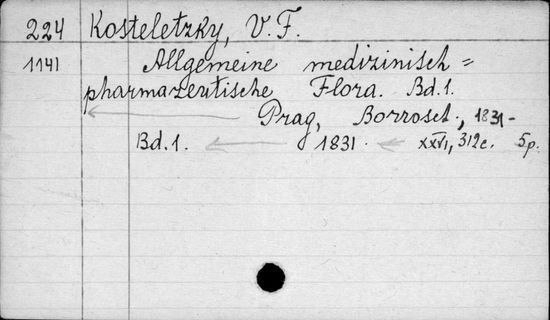 224 Kosteletzky, V. F.
1141 Allgemeine medizinisch=
pharmazeutische Flora. Bd. 1.
Prag, Borrosch., 1831-
Bd. 1. 1831. XXVI, 312 c. 5 p.